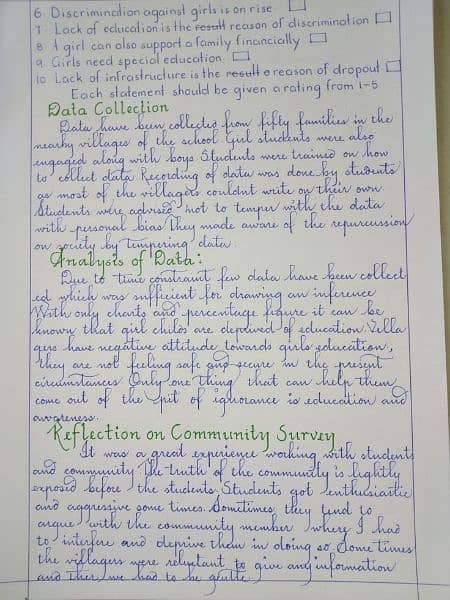 6. Discrimination against girls is on rise
7. Lack of education is the result reason of discrimination
8. A girl can also support a family financially
9. Girls need special education
10. Lack of infrastructure is the result o reason of dropout
Each statement should be given a rating from 1-5
Data Collection
Data have been collected from fifty families in the
nearby villages of the school. Girl students were also
engaged along with boys. Students were trained on how
to collect data. Recording of data was done by students
as most of the villagers couldnt write on their own.
Students were advised not to temper with the data
with personal bias. They made aware of the repurcussion
on society by tempering data.
Analysis of Data:
Due to time constraint few data have been collect
ed which was sufficient for drawing an inference
With only charts and percentage figure it can be
known that girl childs are deprived of education. Villa
gers have negative attitude towards girls education,
they are not feeling safe and secure in the present
circumstances. Only one thing that can help them
come out of the pit of ignorance is education and
awareness.
Reflection on Community Survey
It was a great experience working with student
and community. The truth of the community is lightly
exposed before the students. Students got enthusiastic
and aggressive some times. Sometimes they tend to
argue with the community member where I had
to interfere and deprive them in doing so. Some times
the villagers were reluctant to give any information
and then we had to be gentle